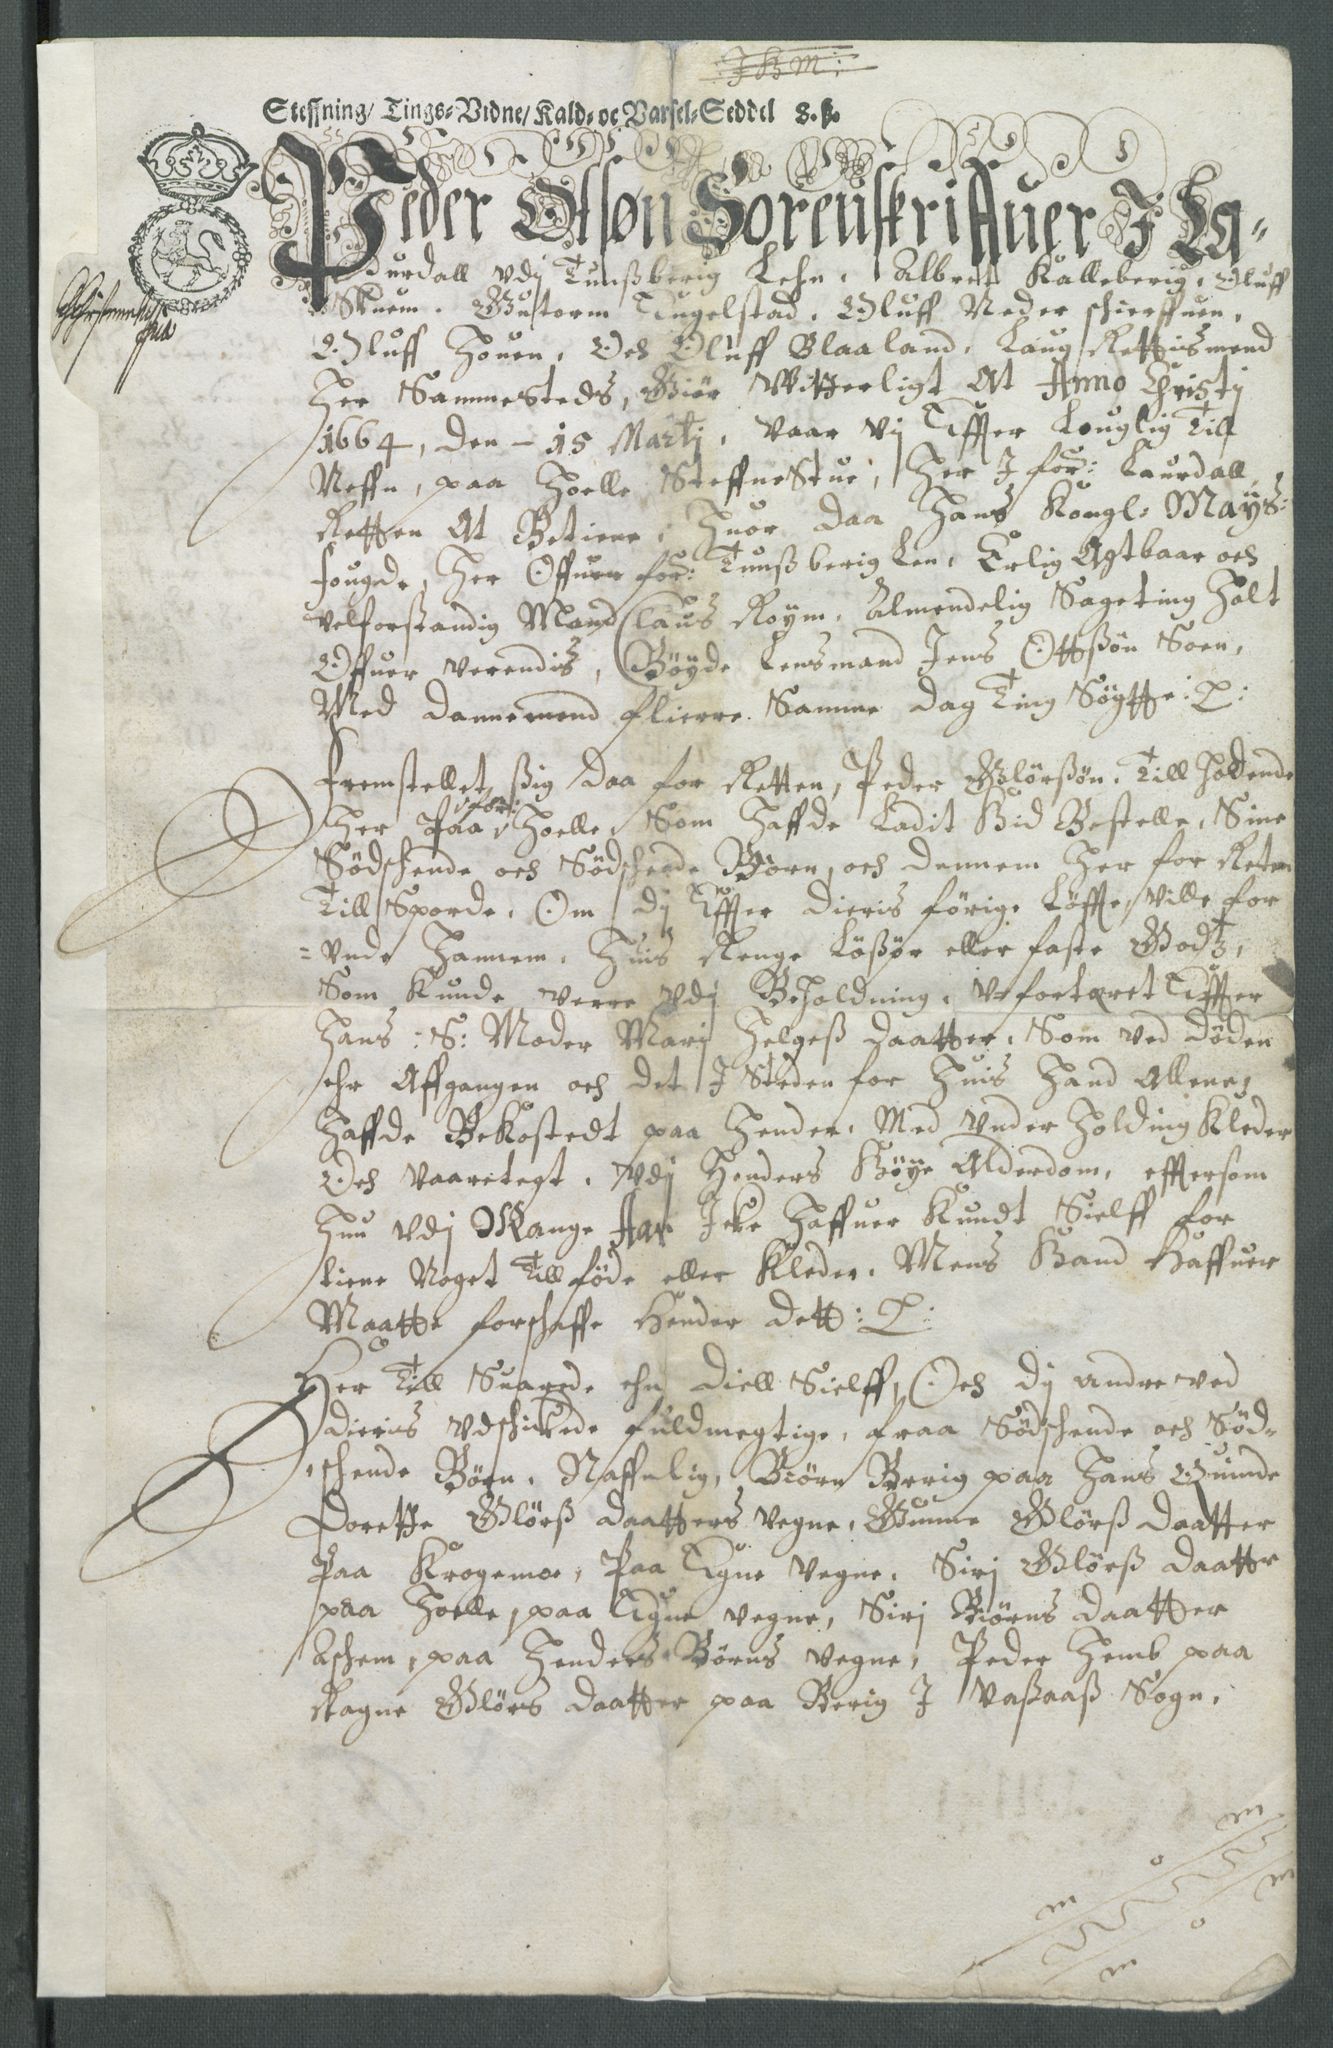 J H M:
Steffning/ Tings-Vidne/ Kald- oc Varsel-Seddel 8. ß.
Peder Otsøn Sorenskriffuer J La-
durdall vdj Tunßberig Lehn, Albret Kalleberig, Oluff
Skuem. Gutorm Tugelstad, Oluff Neder schierffuen,
Oluff Houen, Och Oluff Blaaland, Laug Rettismend
Her Sammesteds, Giør Witterligt At Anno Christj
1664, den - 15 Martj, Vaar Vij Effter Louglig Till
Neffn, paa Hoelle SteffneStue, Her J for: Laurdall,
Retten At Betiene, Huor daa Hans Kongl: Mayß:
fougde, Her Offuer for: Tunßberig Len, Erlig Agtbaar och
velforstandig Mand Claus Røym, Almendelig Sageting Holt
Offuer Verendis, Bøyde Lensmand Jens Ottßøn Soen,
Med dannemend flierre Samme dag Ting Søgtte: P:
fremstellet ßig daa for Retten, Peder Glørßøn, Till Holdende
Her Paa for: Hoelle, Som Haffde Ladit Bid Bestelle, Sine
Sødschende och Sødschende Børn, och dennem Her for Reten
Till Sporde, Om dj Effter dieris førige Løffte, ville for
= vnde Hannem, Huis Renge Løßør eller faste Godtz,
Som Kunde verre vdj Beholdning, vfortæret Effter
Hans: S: Moder Marj Helgeß daatter, Som ved døden
ehr Affgangen och det J Steden for Huis Hand Allene,
Haffde Bekostedt paa Hender, Med vnder Holding Kleder
Och Vaaretegt, vdj Henders Høye Alderdom, effterson
Hun vdj Mange Aar Jcke Haffuer Kundt Sielff for
tiene Noget Till føde eller Kleder, Mens Hand Haffuer
Maatte forschaffe Hender dett: P:
Her Till Suarede ehn diell Sielff, Och dj andre ved
dieris vdschikede fuldmegtige, fraa Sødschende och Sød-
schende Børn, Naffnlig, Biørn Berig paa Hans Quinde
Dorethe Glørß daatters vegne, Gunne Glørß daatter
Paa Krogemoe, Paa Egne vegne, Sirj Glørß daatter
paa Hoelle, paa Egne vegne, Sirj Biørns daatter
Aschem, paa Henders Børns vegne, Peder Hemb paa
Ragne Glørs daatter paa Berig J Vaßaaß Sogn,